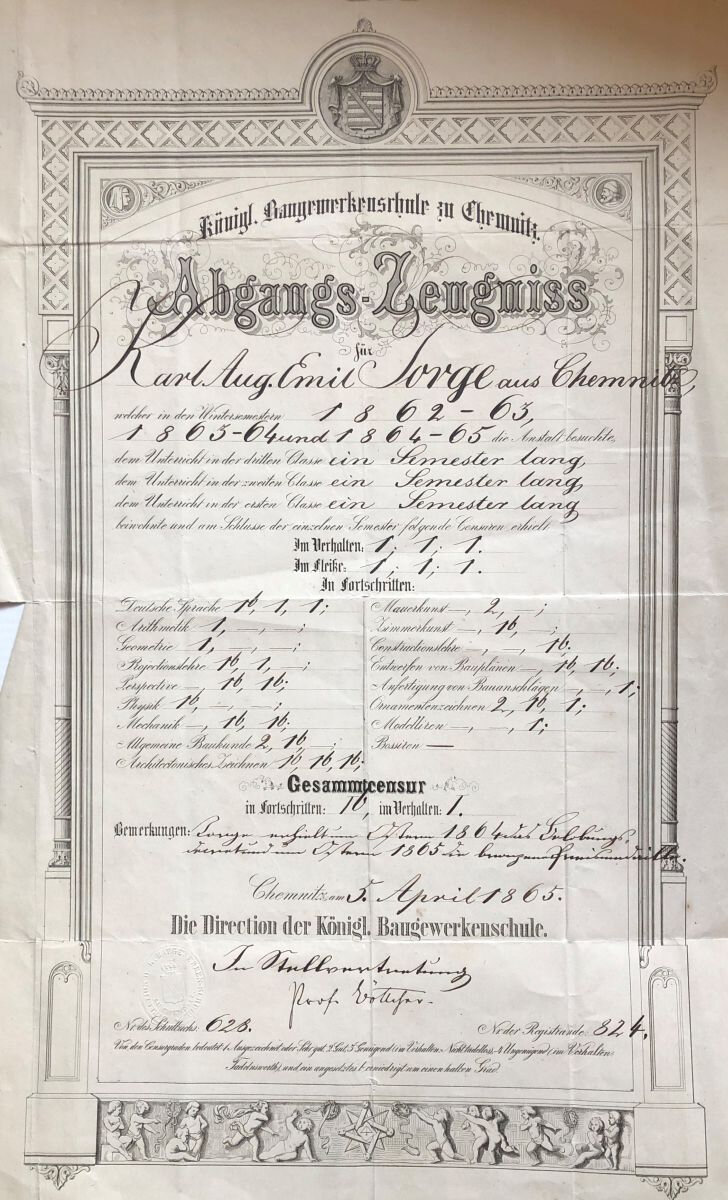 Königl. Baugewerkenschule zu Chemnitz.
Abgangs-Zeugniss
für
Karl Aug. Emil Sorge aus Chemnitz,
welcher in den Wintersemestern 1862-63,
1863-64 und 1864-65 die Anstalt besuchte,
dem Unterricht in der dritten Classe ein Semester lang,
dem Unterricht in der zweiten Classe ein Semester lang,
dem Unterricht in der ersten Classe ein Semester lang
beiwohnte und am Schlusse der einzelnen Semester folgende Censuren erhielt
Im Verhalten: 1; 1; 1.
Im Fleiße: 1; 1; 1.
In Fortschritten:
Deutsche Sprache 1b, 1, 1;
Arithmetik 1, —, —;
Geometrie 1, —, —;
Projectionslehre 1b, 1, —;
Perspective —, 1b, 1b;
Physik 1b, —, —;
Mechanik —, 1b, 1b;
Allgemeine Baukunde 2, 1b, —;
Architectonisches Zeichnen 1b, 1b, 1b;
Maurerkunst —, 2, —;
Zimmerkunst —, 1b, —;
Constructionslehre —, —, 1b;
Entwerfen von Bauplänen —, 1b, 1b;
Anfertigung von Bauanschlägen —, —, 1;
Ornamentenzeichnen 2, 1b, 1;
Modelliren —, —, 1;
Bossiren —
Gesammtcensur
in Fortschritten: 1b, im Verhalten: 1.
Bemerkungen: Sorge erhielt um Ostern 1864 das Belobungs-
decret und um Ostern 1865 die bronzene Preismedaille.
Chemnitz, am 5. April 1865.
Die Direction der Königl. Baugewerkenschule.
In Stellvertretung
Prof. Böttcher.
No des Schulbuchs: 628.
No der Registrande: 824.
Von den Censurgraden bedeutet 1 Ausgezeichnet oder Sehr gut, 2 Gut, 3 Genügend (im Verhalten: Nicht tadellos), 4 Ungenügend (im Verhalten:
Tadelnswerth) und ein angesetztes b erniedrigt um einen halben Grad.